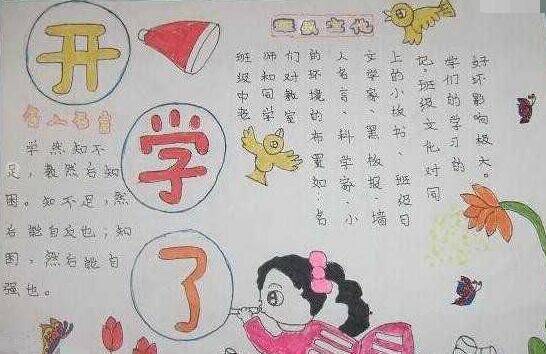 开
学
了
名人名言
学然知不
足，教然后知
困。知不足，然
后能自反也；知
困，然后能自
强也。
班级文化
班级中老
师和同学
们对教室
的环境的布置如：名
人名言、科学家、小
文学家、黑板报、墙
上的小板书、班级日
记。班级文化对同
学们的学习的
好坏影响极大。